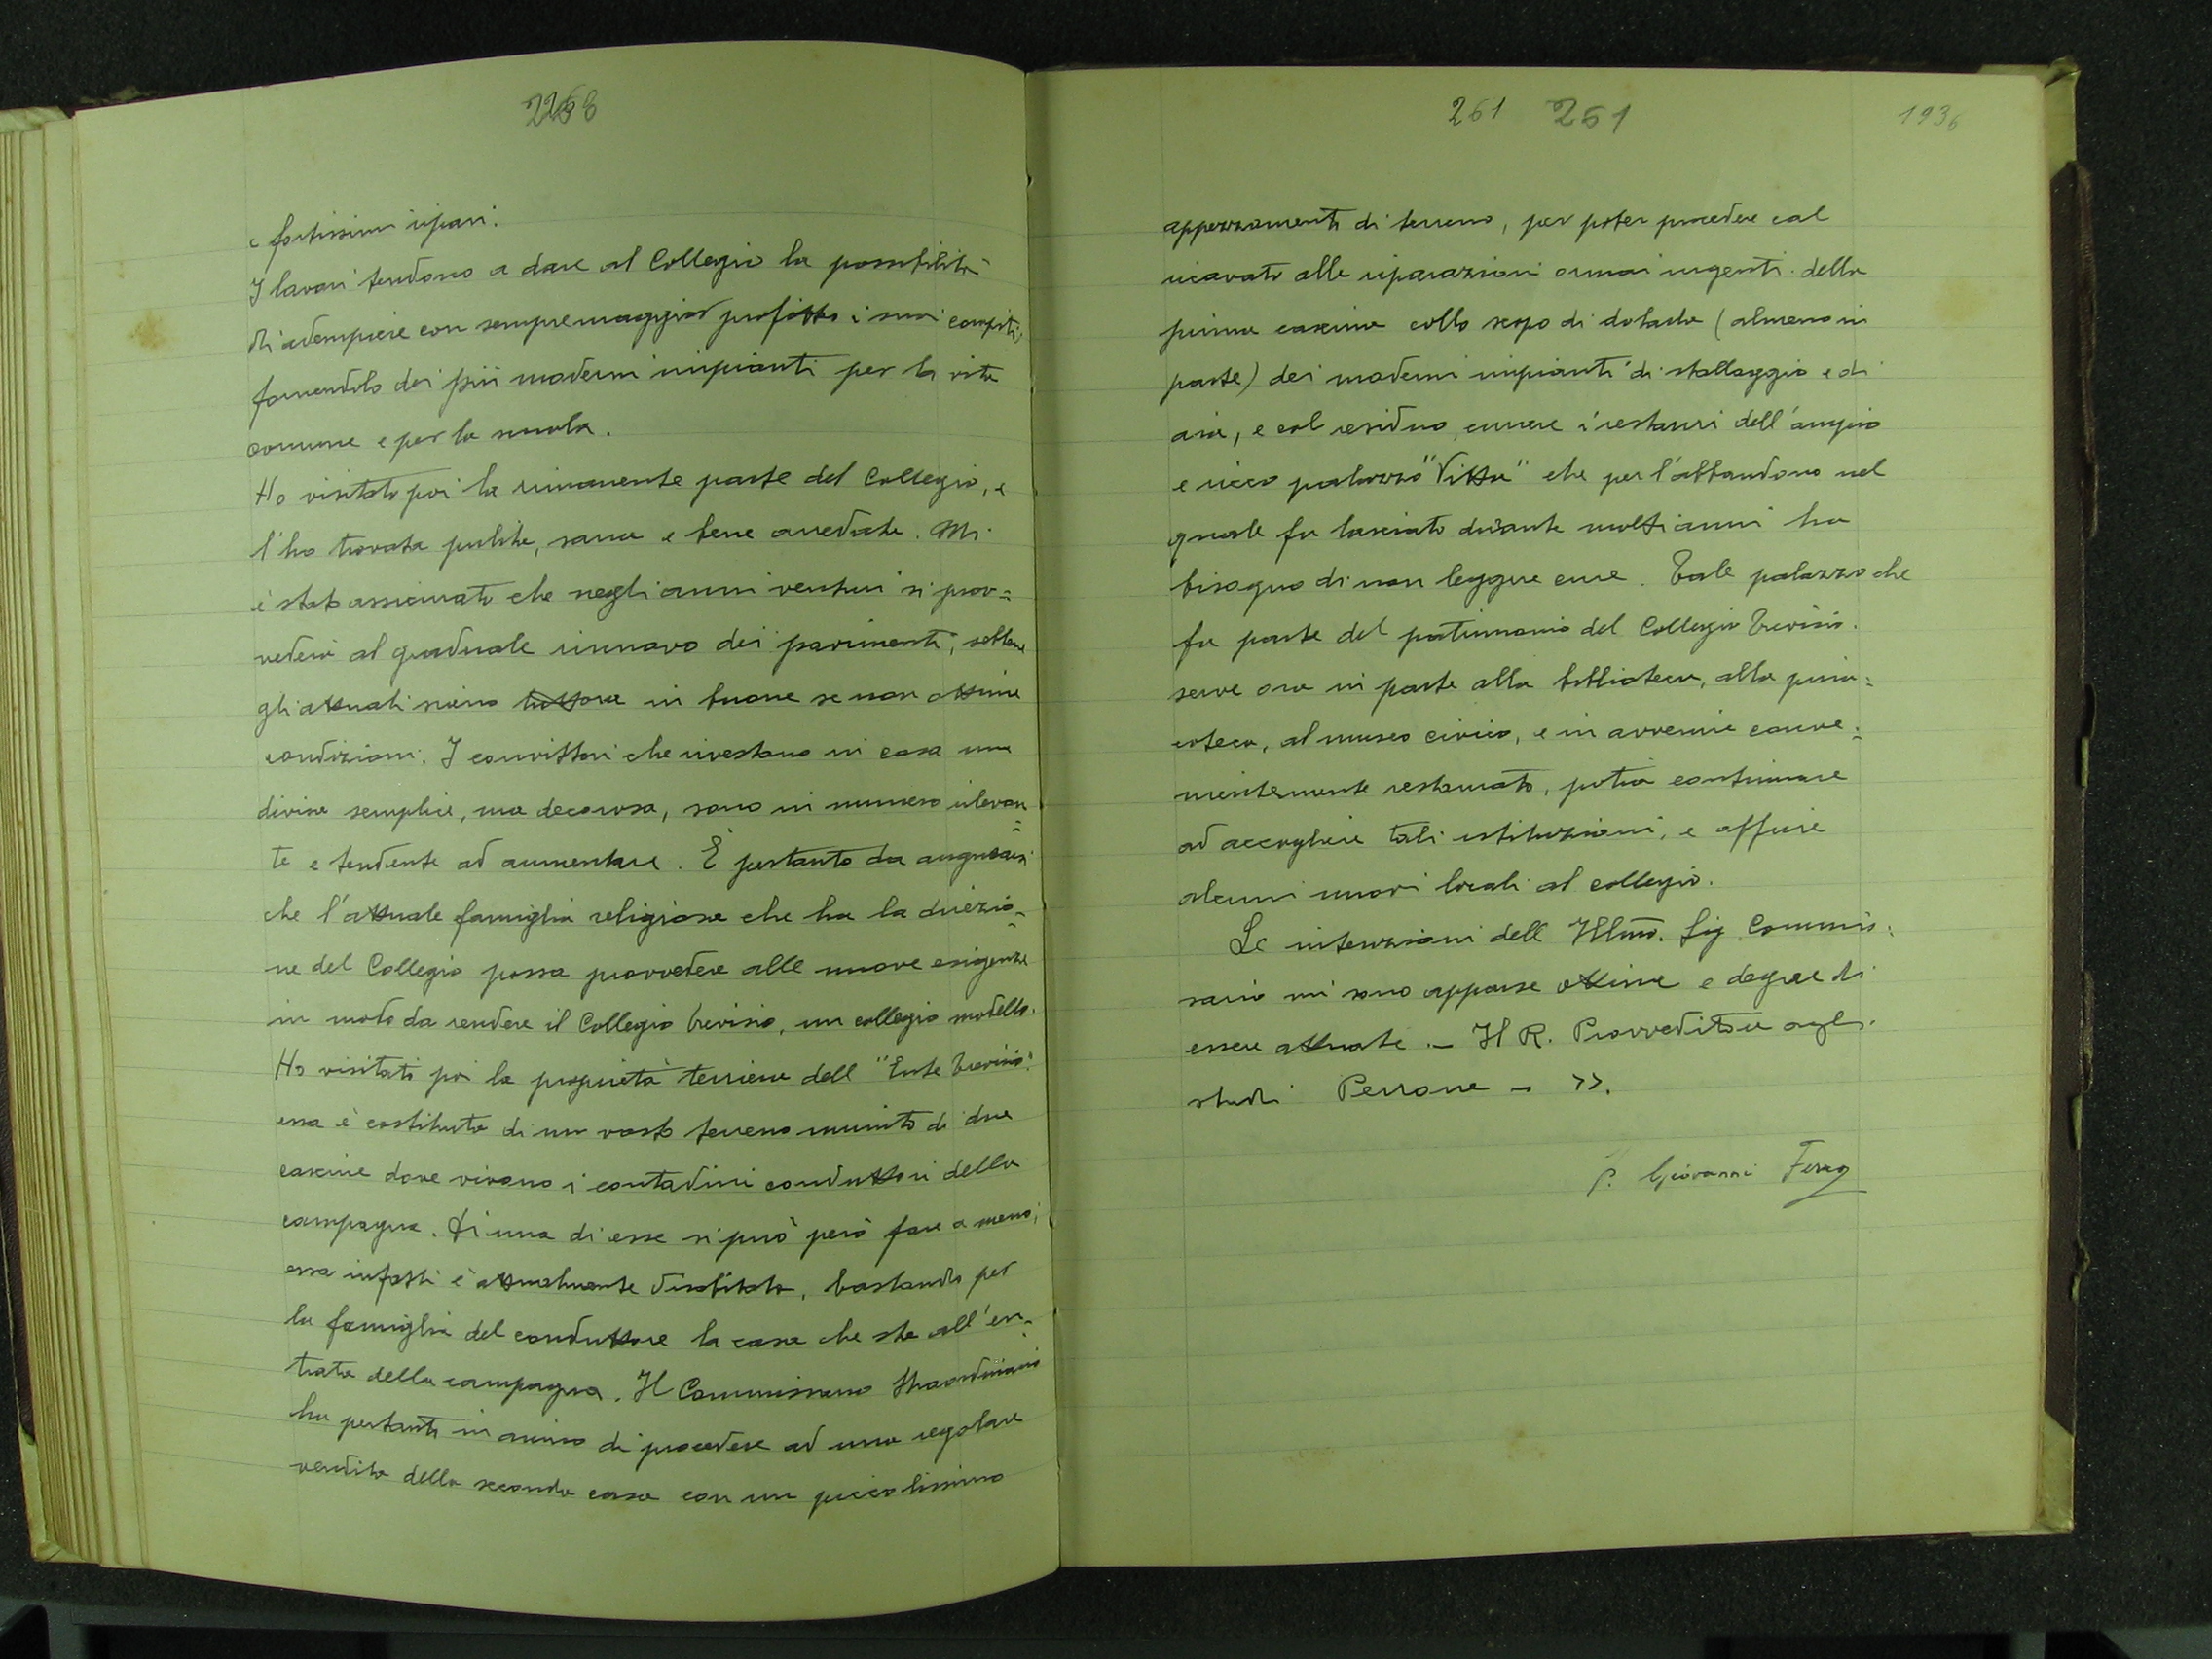 e fortissimi ripari.
I lavori tendono a dare al Collegio la possibilità
di adempiere con sempre maggior profitto i suoi compiti,
fornendolo dei più moderni impianti per la vita
comune e per la scuola.
Ho visitato poi la rimanente parte del Collegio, e
l'ho trovata pulita, sana e bene arredata. Mi
è stato assicurato che negli anni venturi si prov=
vederà al graduale rinnovo dei pavimenti, sebbene
gli attuali siano tuttora in buone se non ottime
condizioni. I convittori che rivestono in casa una
divisa semplice, ma decorosa, sono in numero rilevan=
te e tendente ad aumentare. È pertanto da augurarsi
che l'attuale famiglia religiosa che ha la direzio=
ne del Collegio possa provvedere alle nuove esigenze
in modo da rendere il Collegio Trevisio, un collegio modello.
Ho visitato poi la proprietà terriera dell "Ente Trevisio".
essa è costituita di un vasto terreno munito di due
cascine dove vivono i contadini conduttori della
campagna. Di una di esse si può però fare a meno;
essa infatti è attualmente disabitata, bastando per
la famiglia del conduttore la casa che sta all'en=
trata della campagna. Il Commissario Straordinario
ha pertanto in animo di procedere ad una regolare
vendita della seconda casa con un piccolissimo
261 261 1936
appezzamento di terreno, per poter procedere col
ricavato alle riparazioni ormai urgenti della
prima cascina collo scopo di dotarla (almeno in
parte) dei moderni impianti di stallaggio e di
aia, e col residuo, curare i restauri dell'ampio
e ricco palazzo "Vitta" che per l'abbandono nel
quale fu lasciato durante molti anni ha
bisogno di non leggere cure. Tale palazzo che
fa parte del patrimonio del Collegio Trevisio.
serve ora in parte alla biblioteca, alla pina=
coteca, al museo civico, e in avvenire conve=
nientemente restaurato, potrà continuare
ad accogliere tali istituzioni, e offrire
alcuni nuovi locali al collegio.
Le intenzioni dell Illmo. Sig. Commis=
sario mi sono apparse ottime e degne di
essere attuate. - Il R. Provveditore agli
studi Perrone - >>.
P. Giovanni Ferro